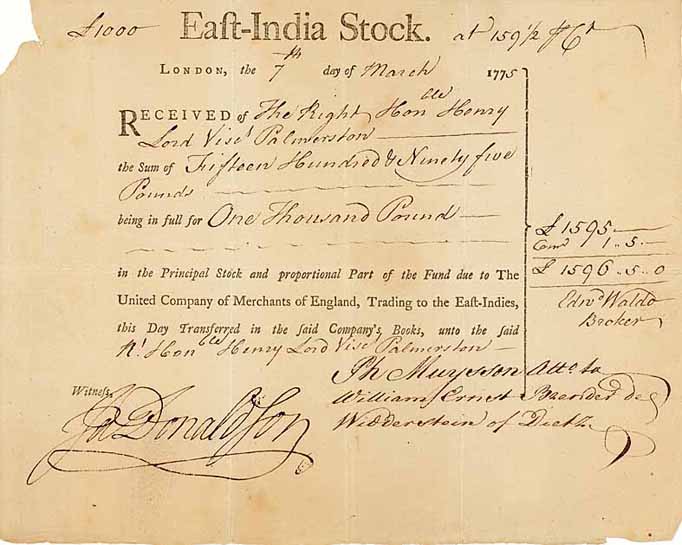 £1000 Eaſt-India Stock. at 159 1/2 ⅌ Ct
LONDON, the 7th day of March 1775
RECEIVED of The Right Honble Henry
Lord Visct Palmerston
the Sum of Fifteen Hundred & Ninety five
Pounds
being in full for One Thousand Pound
£ 1595
Comn 1..5..
£ 1596..5..0
in the Principal Stock and proportional Part of the Fund due to The
United Company of Merchants of England, Trading to the Eaſt-Indies,
this Day Transferred in the ſaid Company's Books, unto the ſaid
Rt Honble Henry Lord Visct Palmerston
Edwd Waldo
Broker
Ph Muysson Atto to
William Ernst de
Widderstein of Dietz
Witneſs,
Ja Donaldson